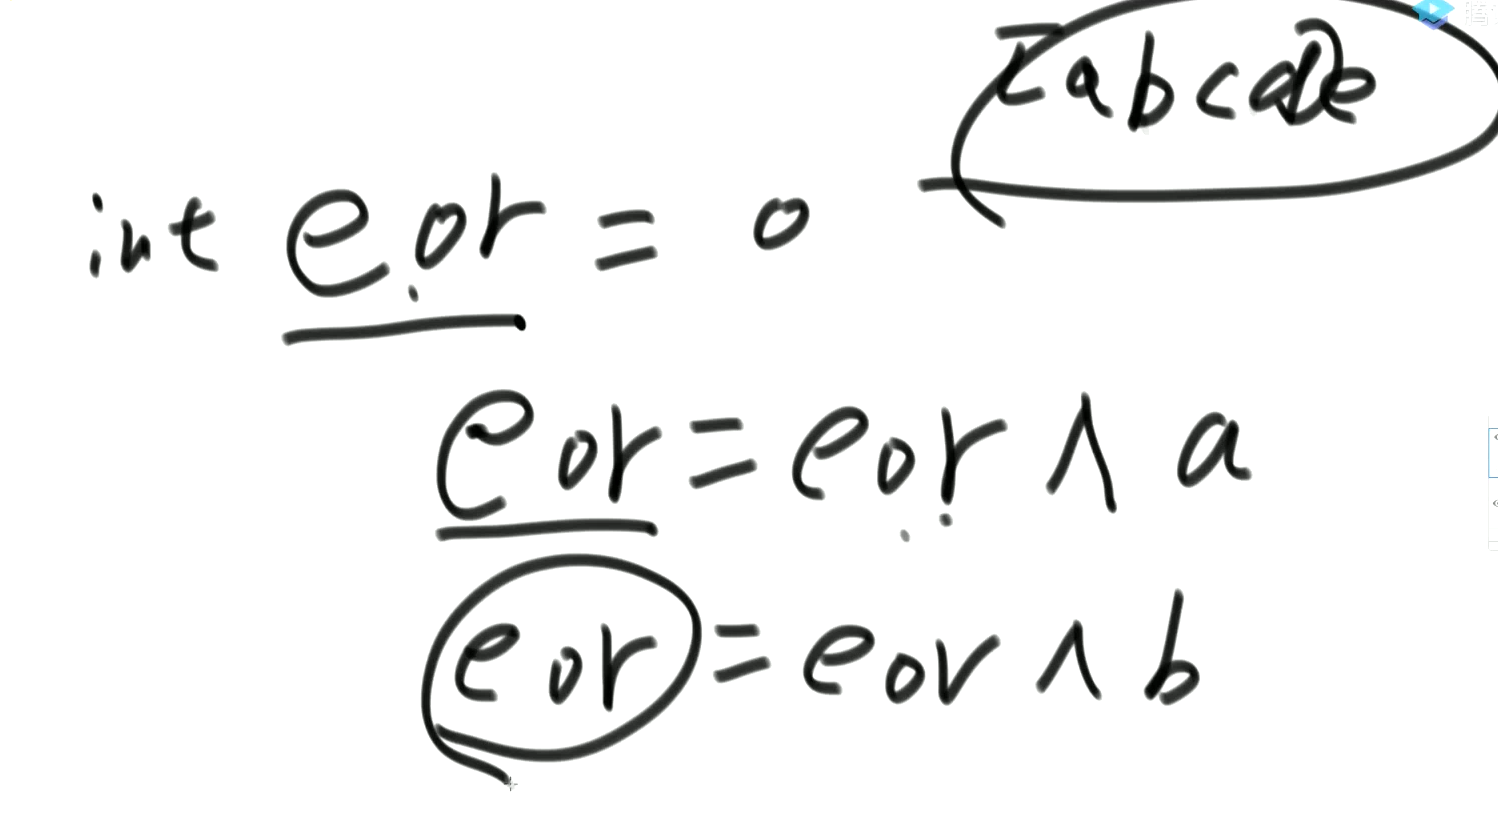 [abcde
int eor = 0
eor = eor ^ a
eor = eor ^ b